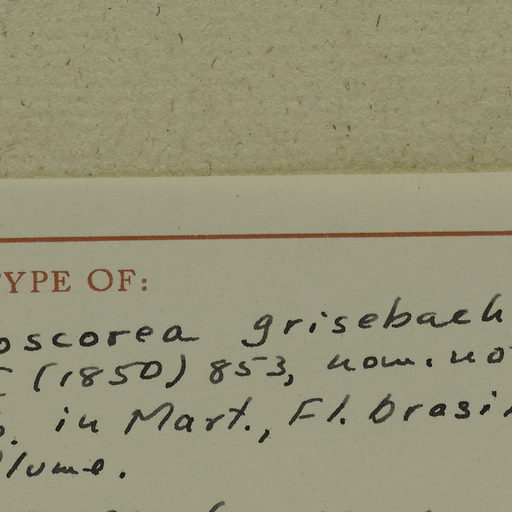 TYPE OF:
oscorea grisebach
(1850) 853, nom. no
in Mart., Fl. brasi
lume.